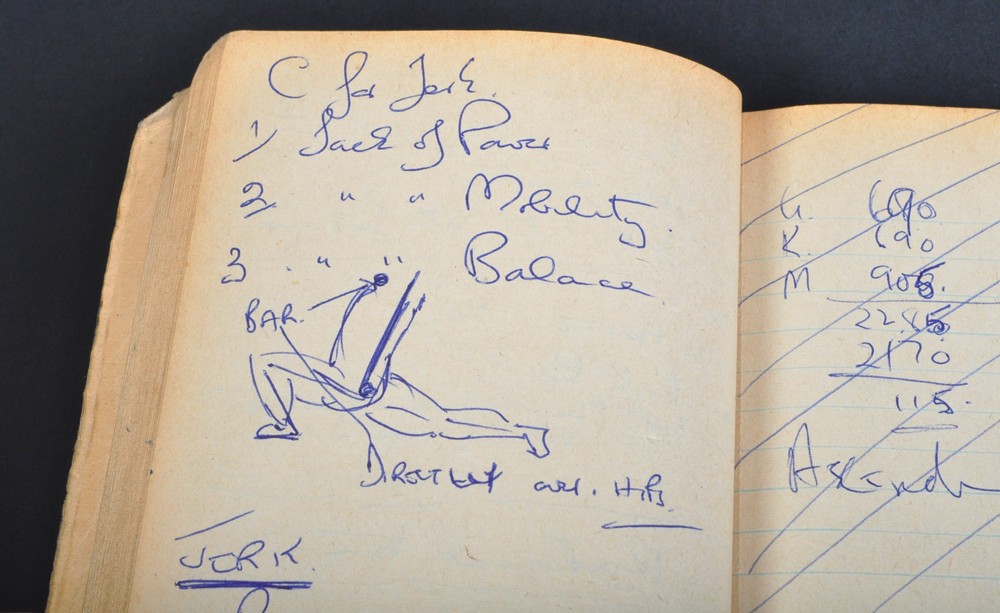 C for Jerk.
1) Lack of Power
2. " " Mobility.
3. " " Balance
BAR.
Directly over. Hips.
JERK.
K.
M 905.
2170
115.